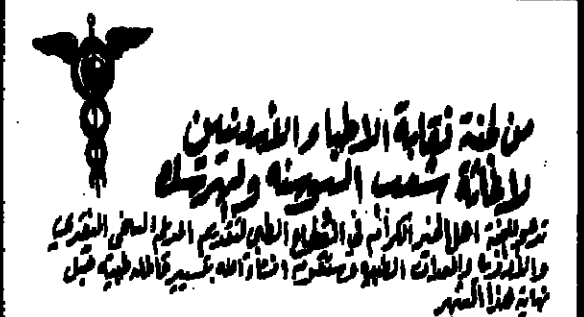 من لجنة نقابة الاطباء الأردنيين
لاغاثة شعب البوسنه والهرسك
تدعو اللجنة اهل الخير الكرام في القطاع الطبي لتقديم الدعم السخي النقدي
والأدوية والمعدات الطبية وستقوم انشاءالله بتسيير قافله طبية قبل
نهاية هذا الشهر